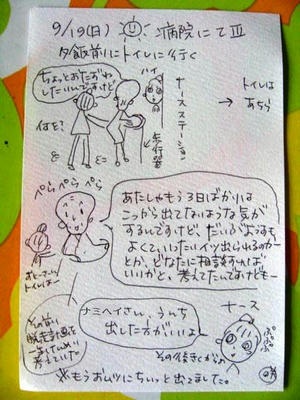 9/19(日) 病院にて Ⅲ
夕飯前にトイレに行く
ちょっとおたずね
したいんですけど。
ハイ
ナースステーション
→ トイレは
あちら
何を?
歩行器
ぺらぺらぺら
あたしゃもう3日ばかりは
こっから出てないような気が
するんですけど、だいぶ
よくて、いったいイツ出られるのか
とか、どなたに相談すれば
いいかと、考えてたんですけども〜
おとーさん
トイレは〜
その前に
脱走計画を
考えていた。
ナミヘイさん、うんち
出した方がいいよ
ナース
ぷぷぷ
その後きくがよ
※もうおムツにちぃっと出てました。